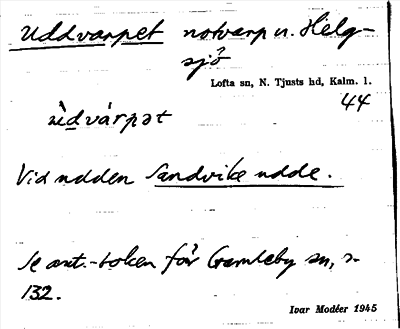 Uddvarpet notvarp u. Helg-
sjö
Lofta sn, N. Tjusts hd, Kalm. l.
44
ùdvárpət
Vid udden Sandvike udde.
Se ant.-boken för Gamleby sn, s.
132.
Ivar Modéer 1945